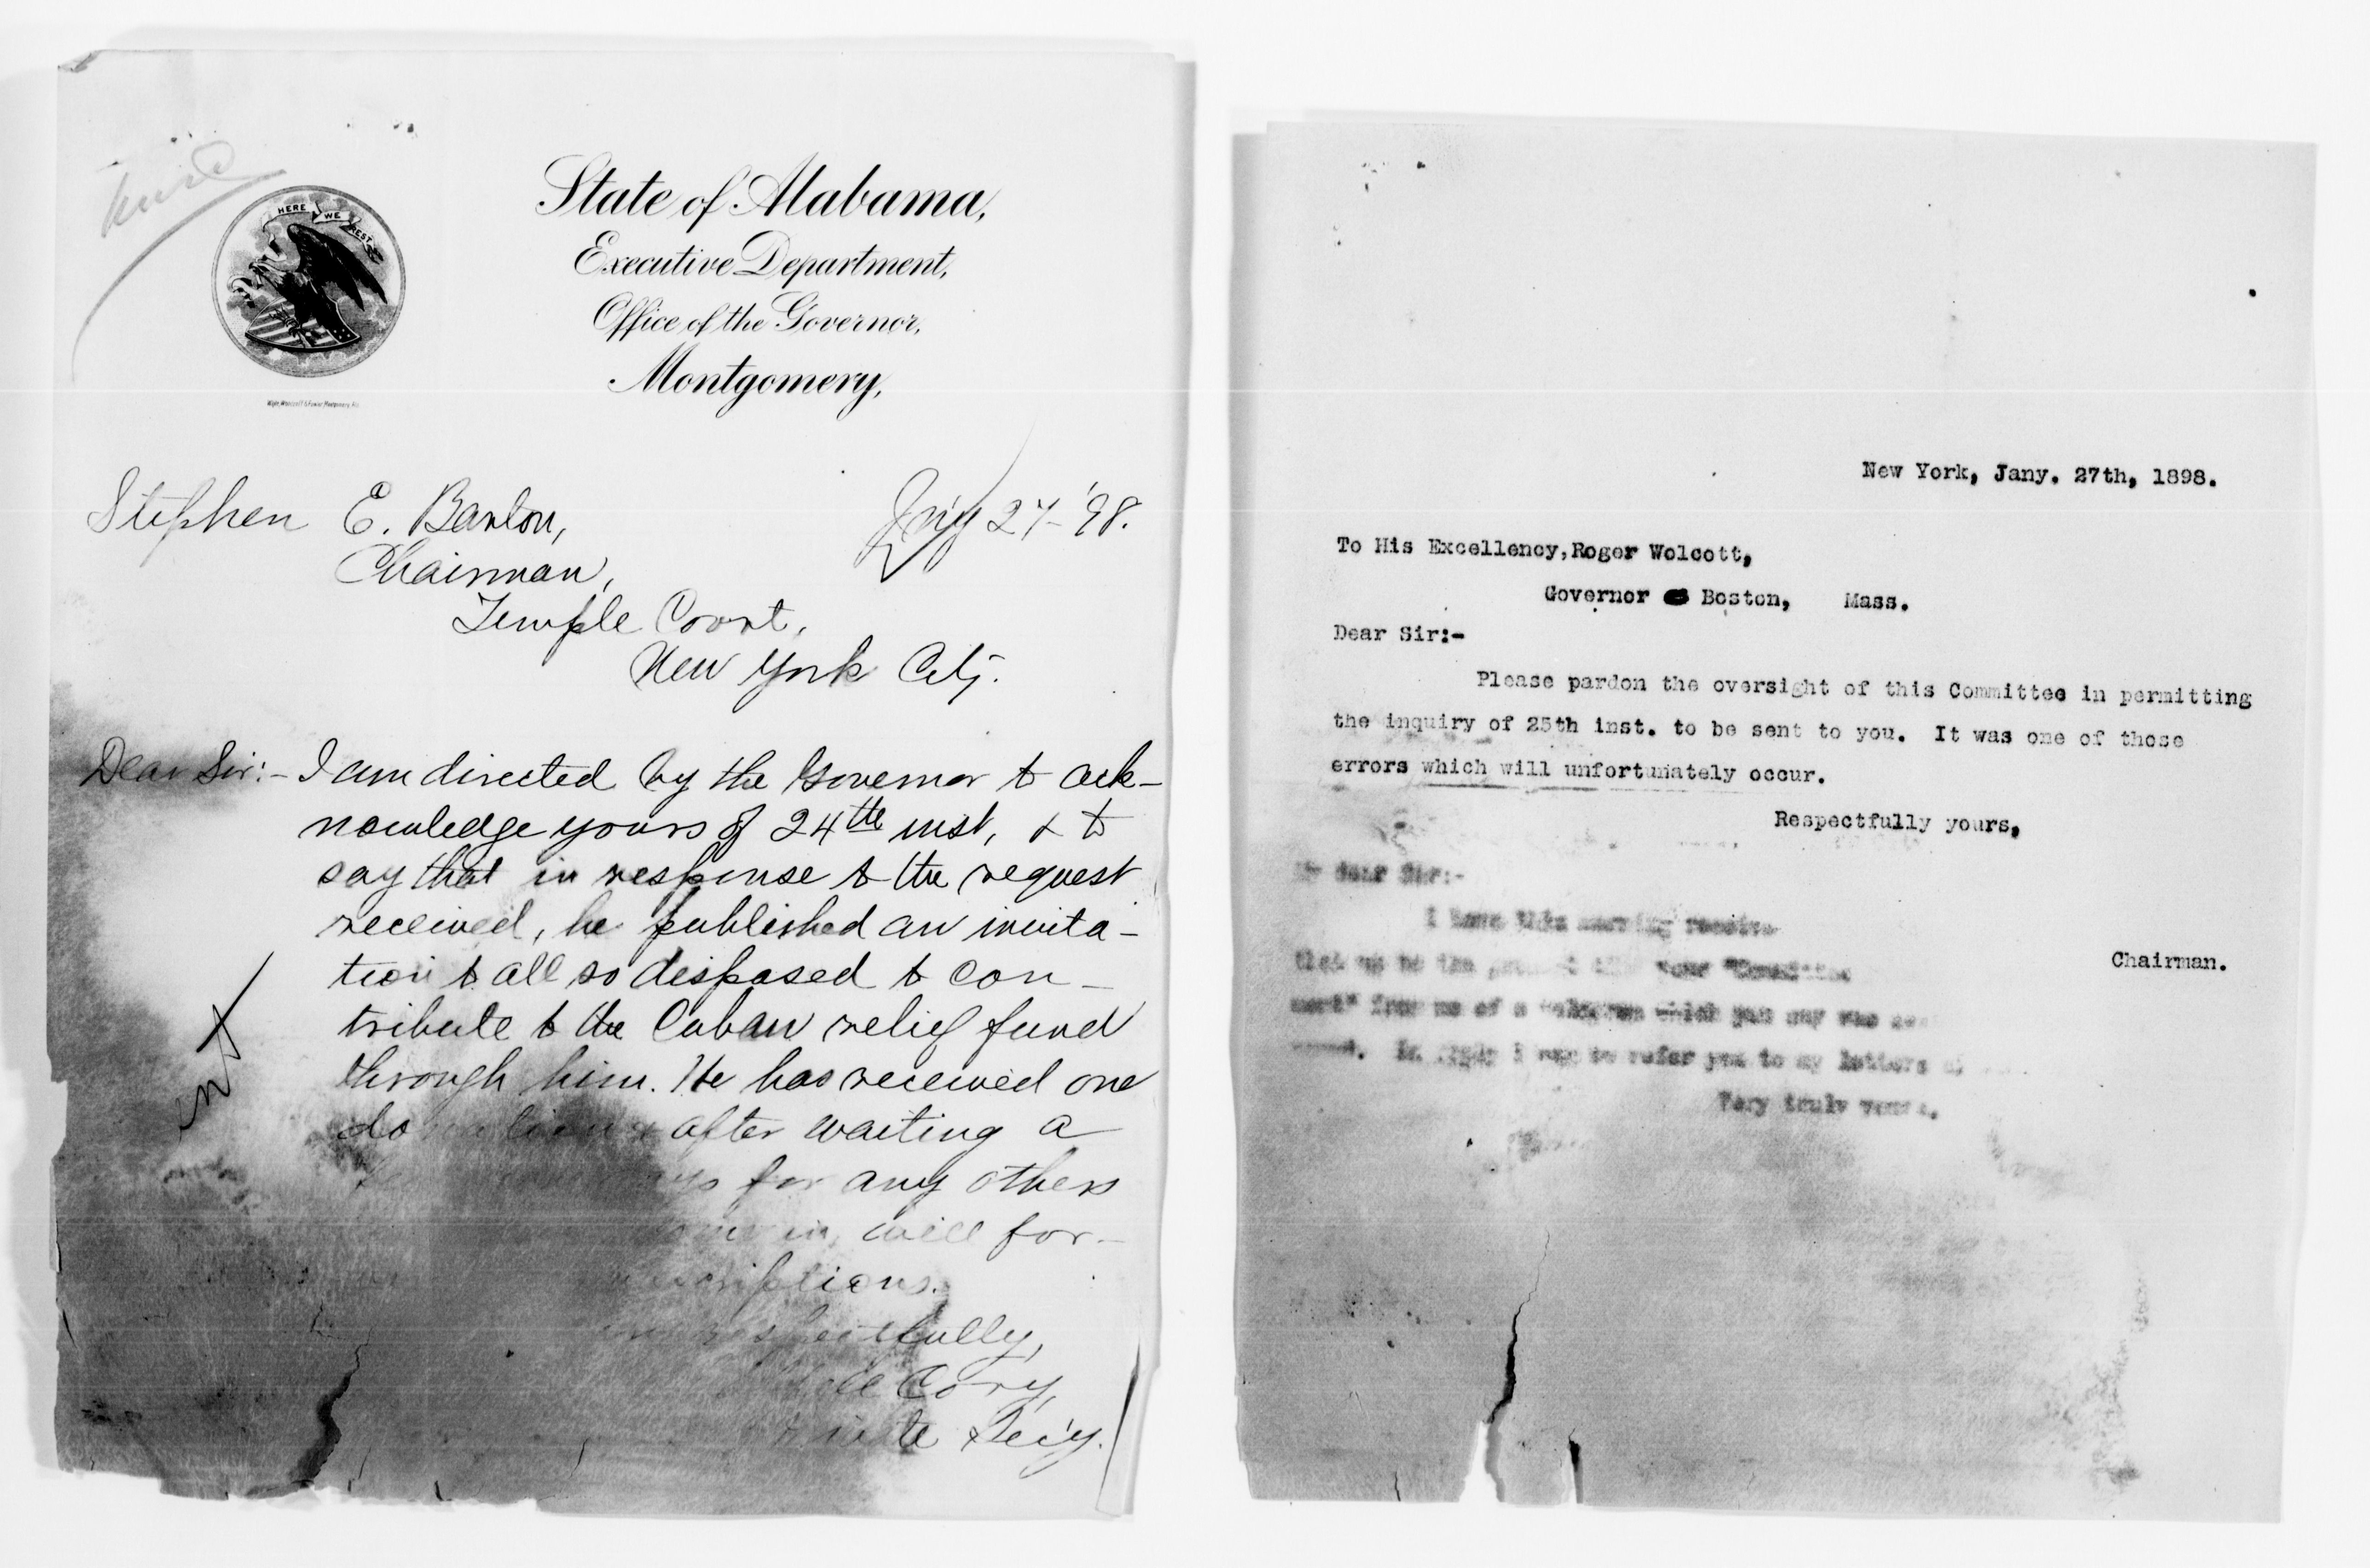 HERE WE REST
State of Alabama,
Executive Department,
Office of the Governor,
Montgomery,
Stephen E. Barton,
Jn'y 27-'98.
Chairman,
Temple Court,
New York City.
Dear Sir:- I am directed by the Governor to ack-
nowledge yours of 24th inst, & to
say that in response to the request
received, he published an invita-
tion to all so disposed to con-
tribute to the Cuban relief fund
through him. He has received one
donation & after waiting a
for any others
in, will for-
respectfully,
Cory,
Private Sec'y.
New York, Jany. 27th, 1898.
To His Excellency, Roger Wolcott,
Governor Boston, Mass.
Dear Sir:-
Please pardon the oversight of this Committee in permitting
the inquiry of 25th inst. to be sent to you. It was one of those
errors which will unfortunately occur.
Respectfully yours,
My dear Sir:-
I have this morning
Chairman.
"Committee
from me of a telegram which you say was
I beg to refer you to my letters
Very truly yours,